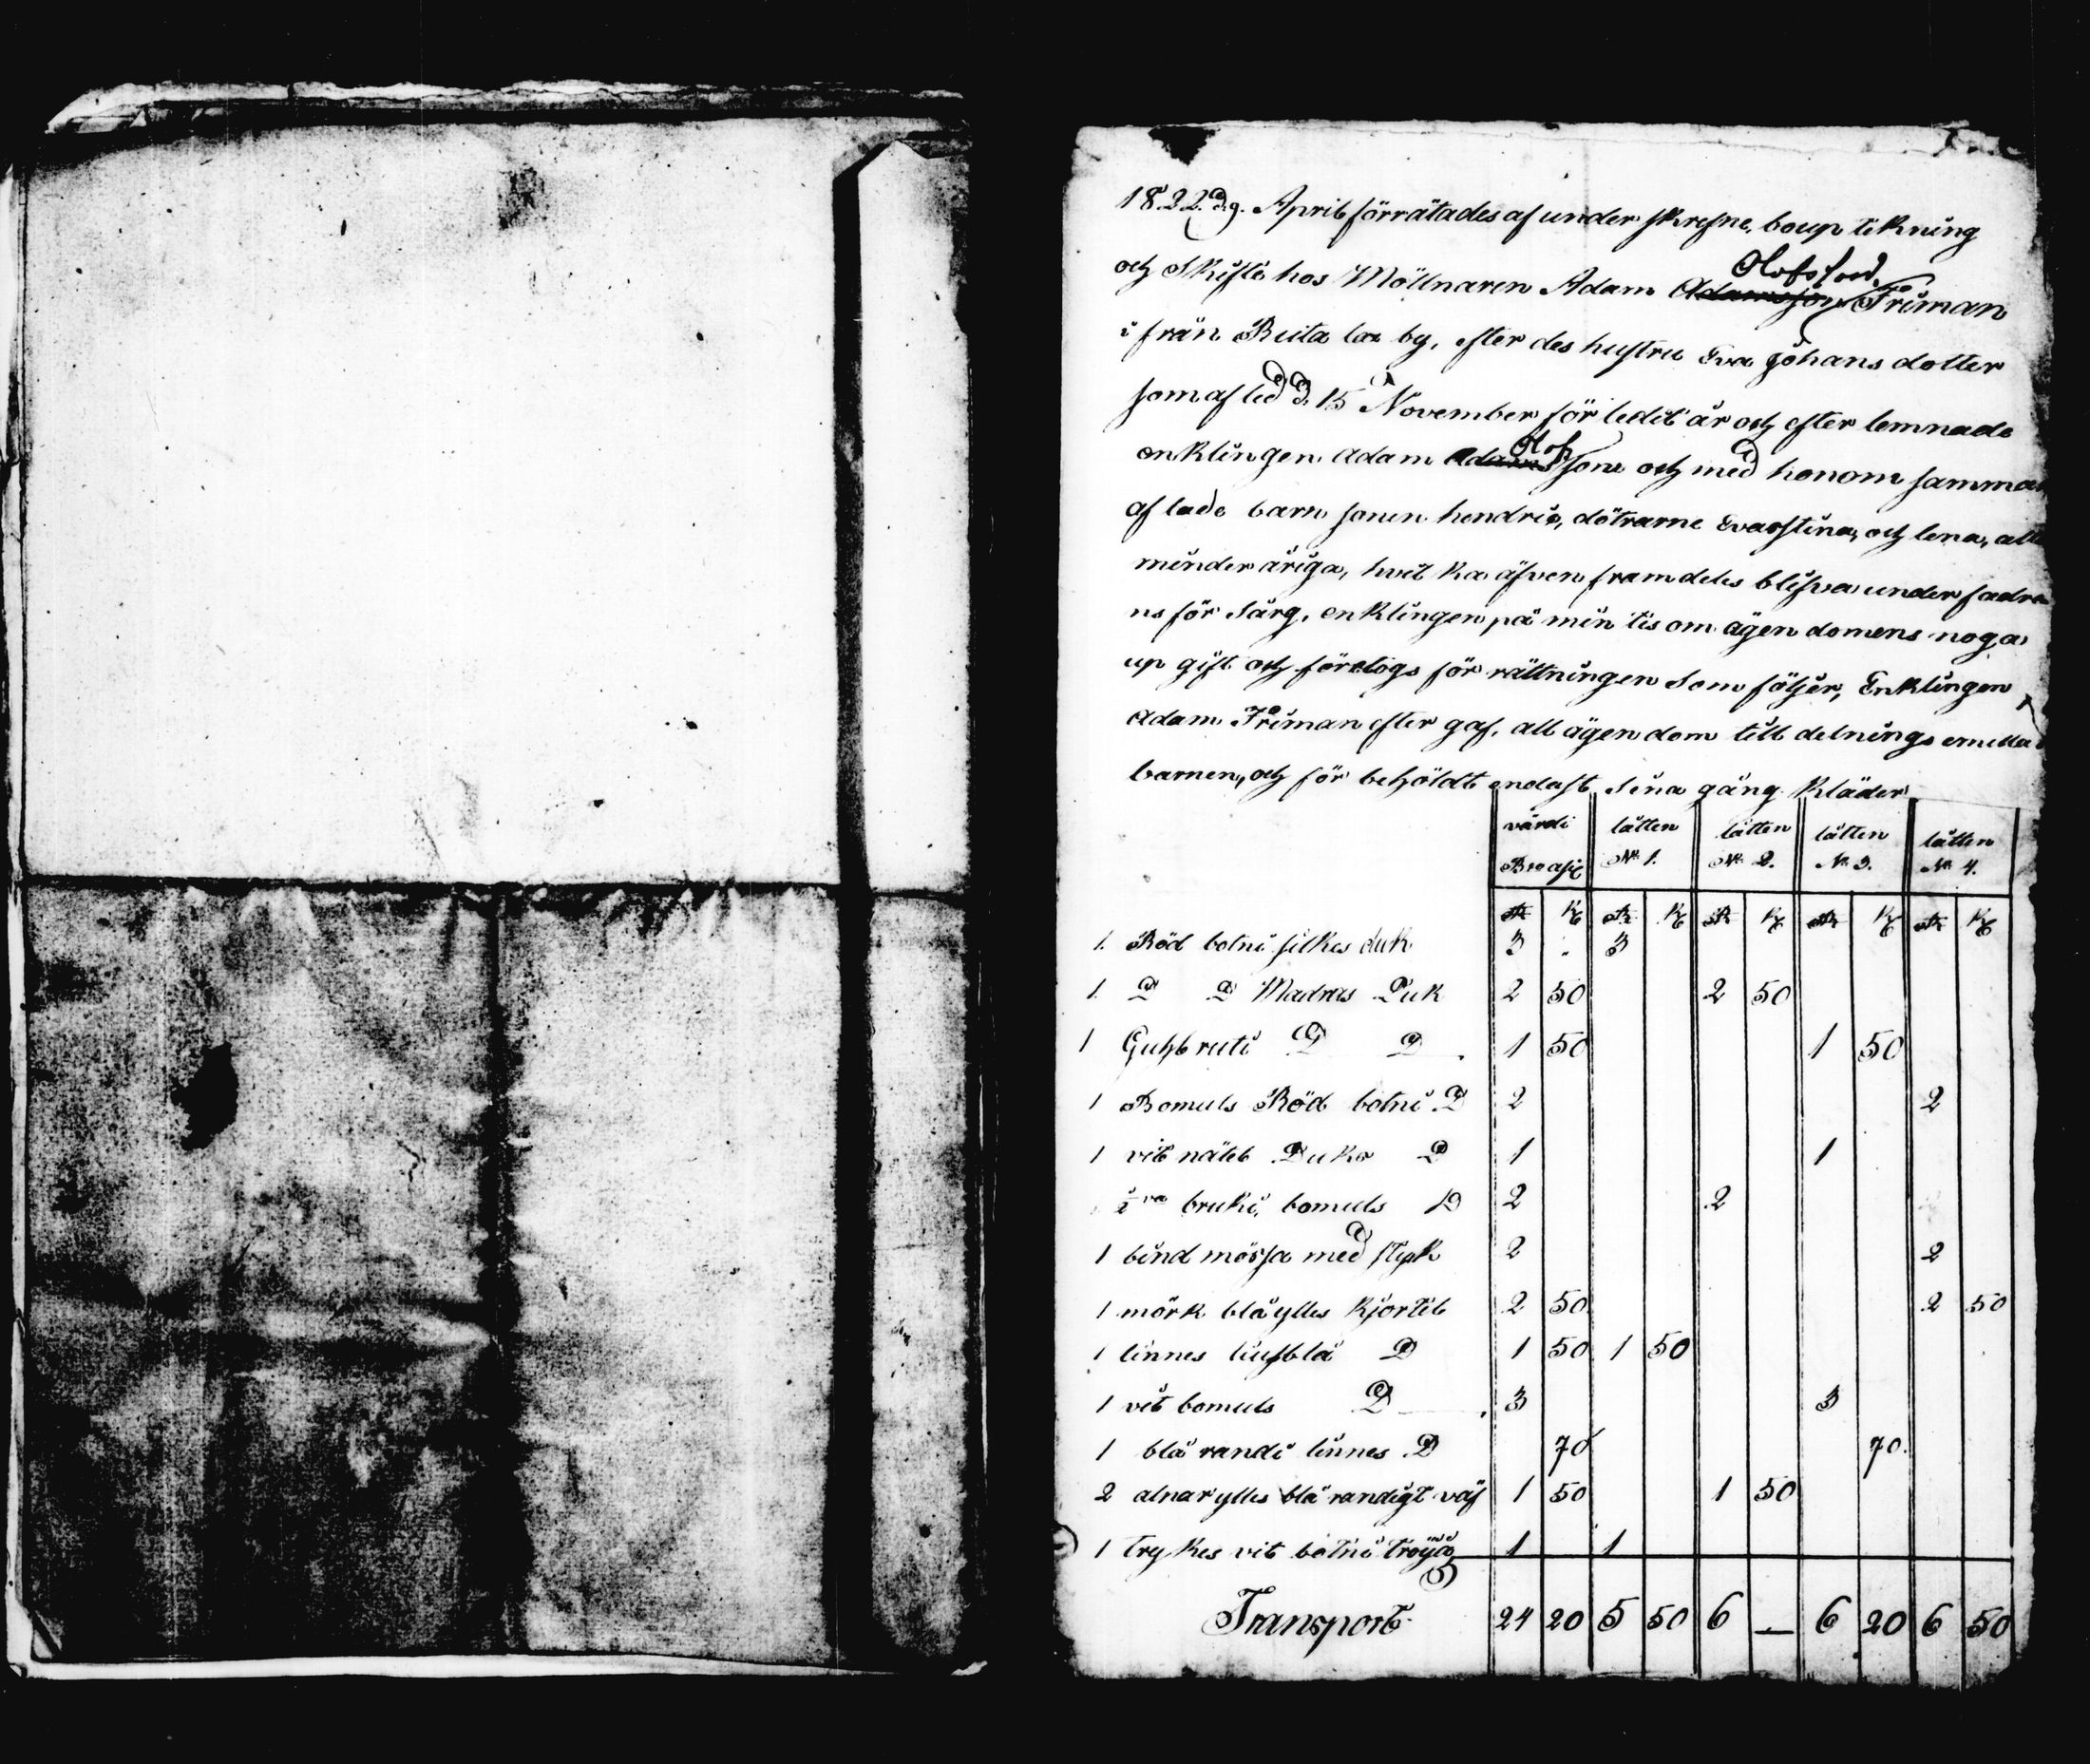 1822 d. 9. April förrätades af under skrefne, boup tekning
och Skifte hos Möllnaren Adam Adamsson Olofsson Friman
i från Ruita lax by, efter des hustru Eva Johans dotter
som af led d. 15 November för ledit år och efter lemnade
enklingen Adam Adams Olofssone och med honom samman
af lade barn sonen hendric, dötrarne Evastina, och lena, alla
minder åriga, hvil ka äfven framdeles blifva under fadre
ns för sårg, enklingen på min tis om ägen domens noga
up gift och företogs för rättningen som följer, Enklingen
Adam Friman efter gaf, all ägen dom till delnings emellan
barnen, och för behöldt endast Sina gång kläder
värdi låtten låtten låtten låtten
No 1. No 2. No 3. No 4.
R K R K R K R K R K
1. Röd botni silkes duk 3 . 3
1. D D Madras Duk 2 50 2 50
1 Guhlruti D D 1 50 1 50
1 Bomuls Röd botni D 2 2
1 vit nätel Duks D 1 1
bruki bomuls D 2 2
1 bind mössa med styk 2 2
1 mörk blå ylles kjortel 2 50 2 50
1 linnes liusblå D 1 50 1 50
1 vit bomuls D 3 3
1 blå randi linnes D 70 70
2 alnar ylles blå randigt väf 1 50 1 50
1 trykes vit botni tröija 1 1
Transport 24 20 5 50 6 — 6 20 6 50